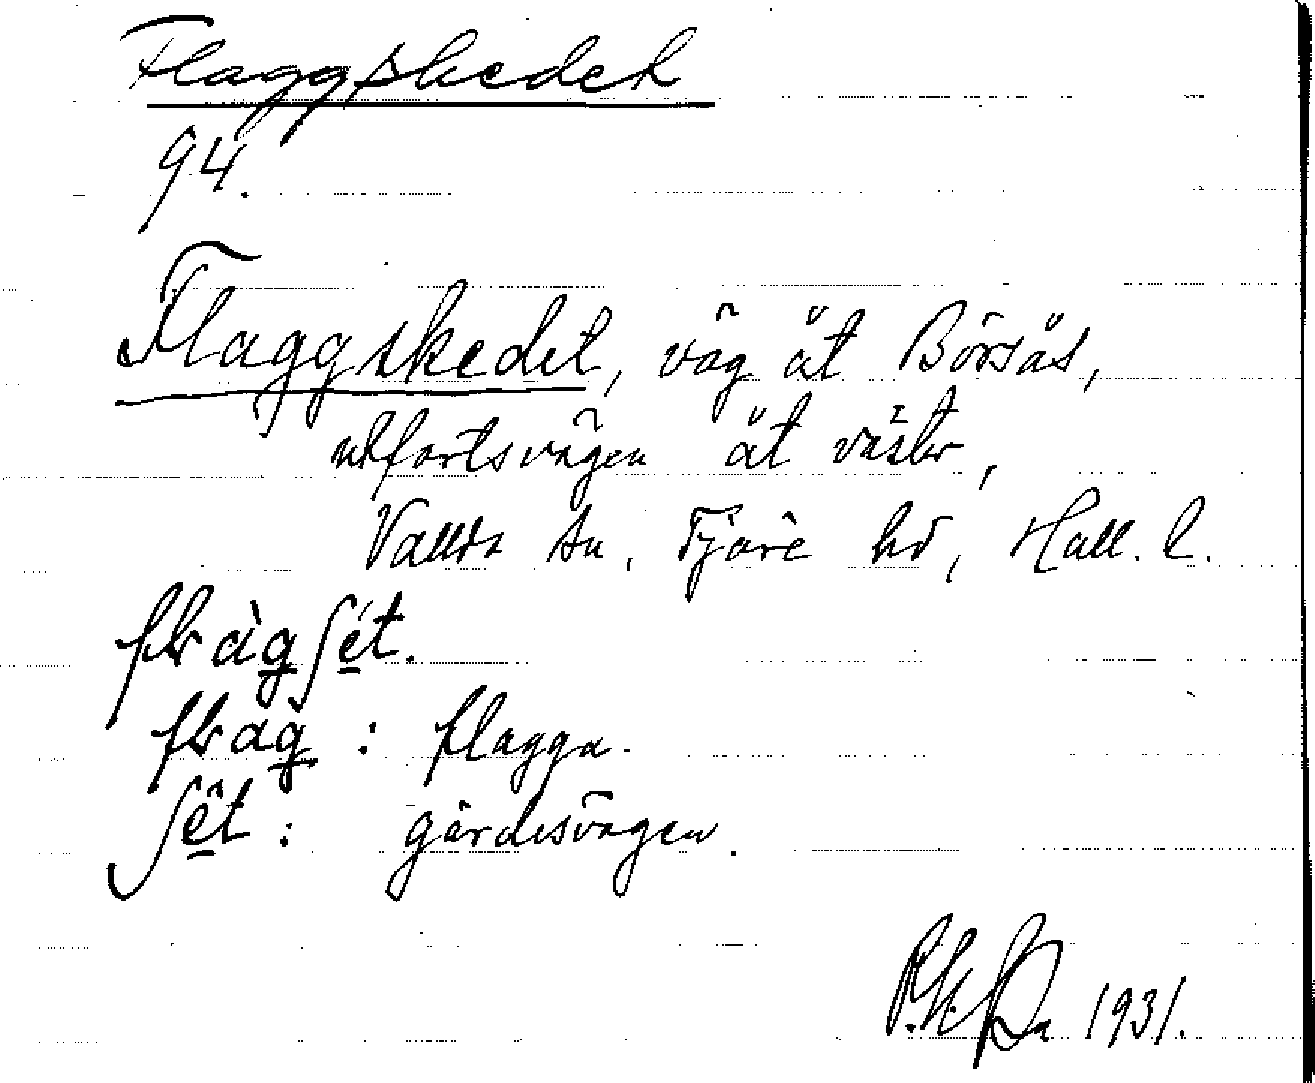 Flaggskedet
94.
Flaggskedet, väg åt Börsås,
utfartsvägen åt väster,
Vallda sn, Fjäre hd, Hall. l.
gärdesvägen.
flagga.
1931.